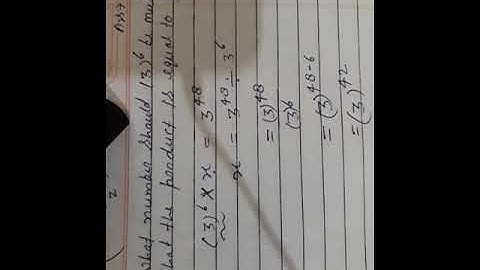 What number should (3)^6 be mu
that the product is equal to
(3)^6 × x = 3^48
x = 3^48 ÷ 3^6
= (3)^48
(3)^6
= (3)^48-6
= (3)^42